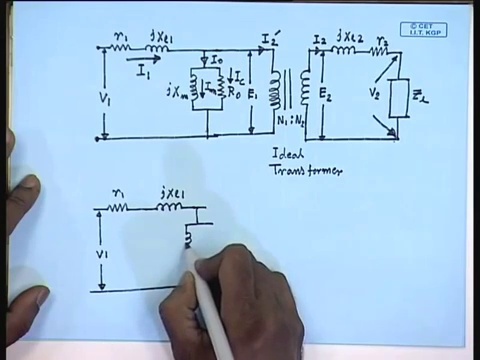 © CET
I.I.T. KGP
r1 jxe1 I2' I2 jxe2 r2
I1 I0
V1 jxm Im Ic R0 E1 E2 V2 ZL
N1 : N2
Ideal
Transformer
r1 jxe1
V1